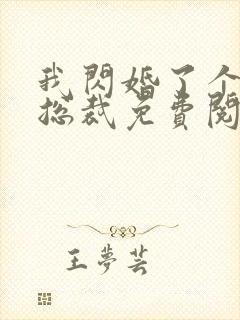 我閃婚了个
总裁免費閱
王夢芸